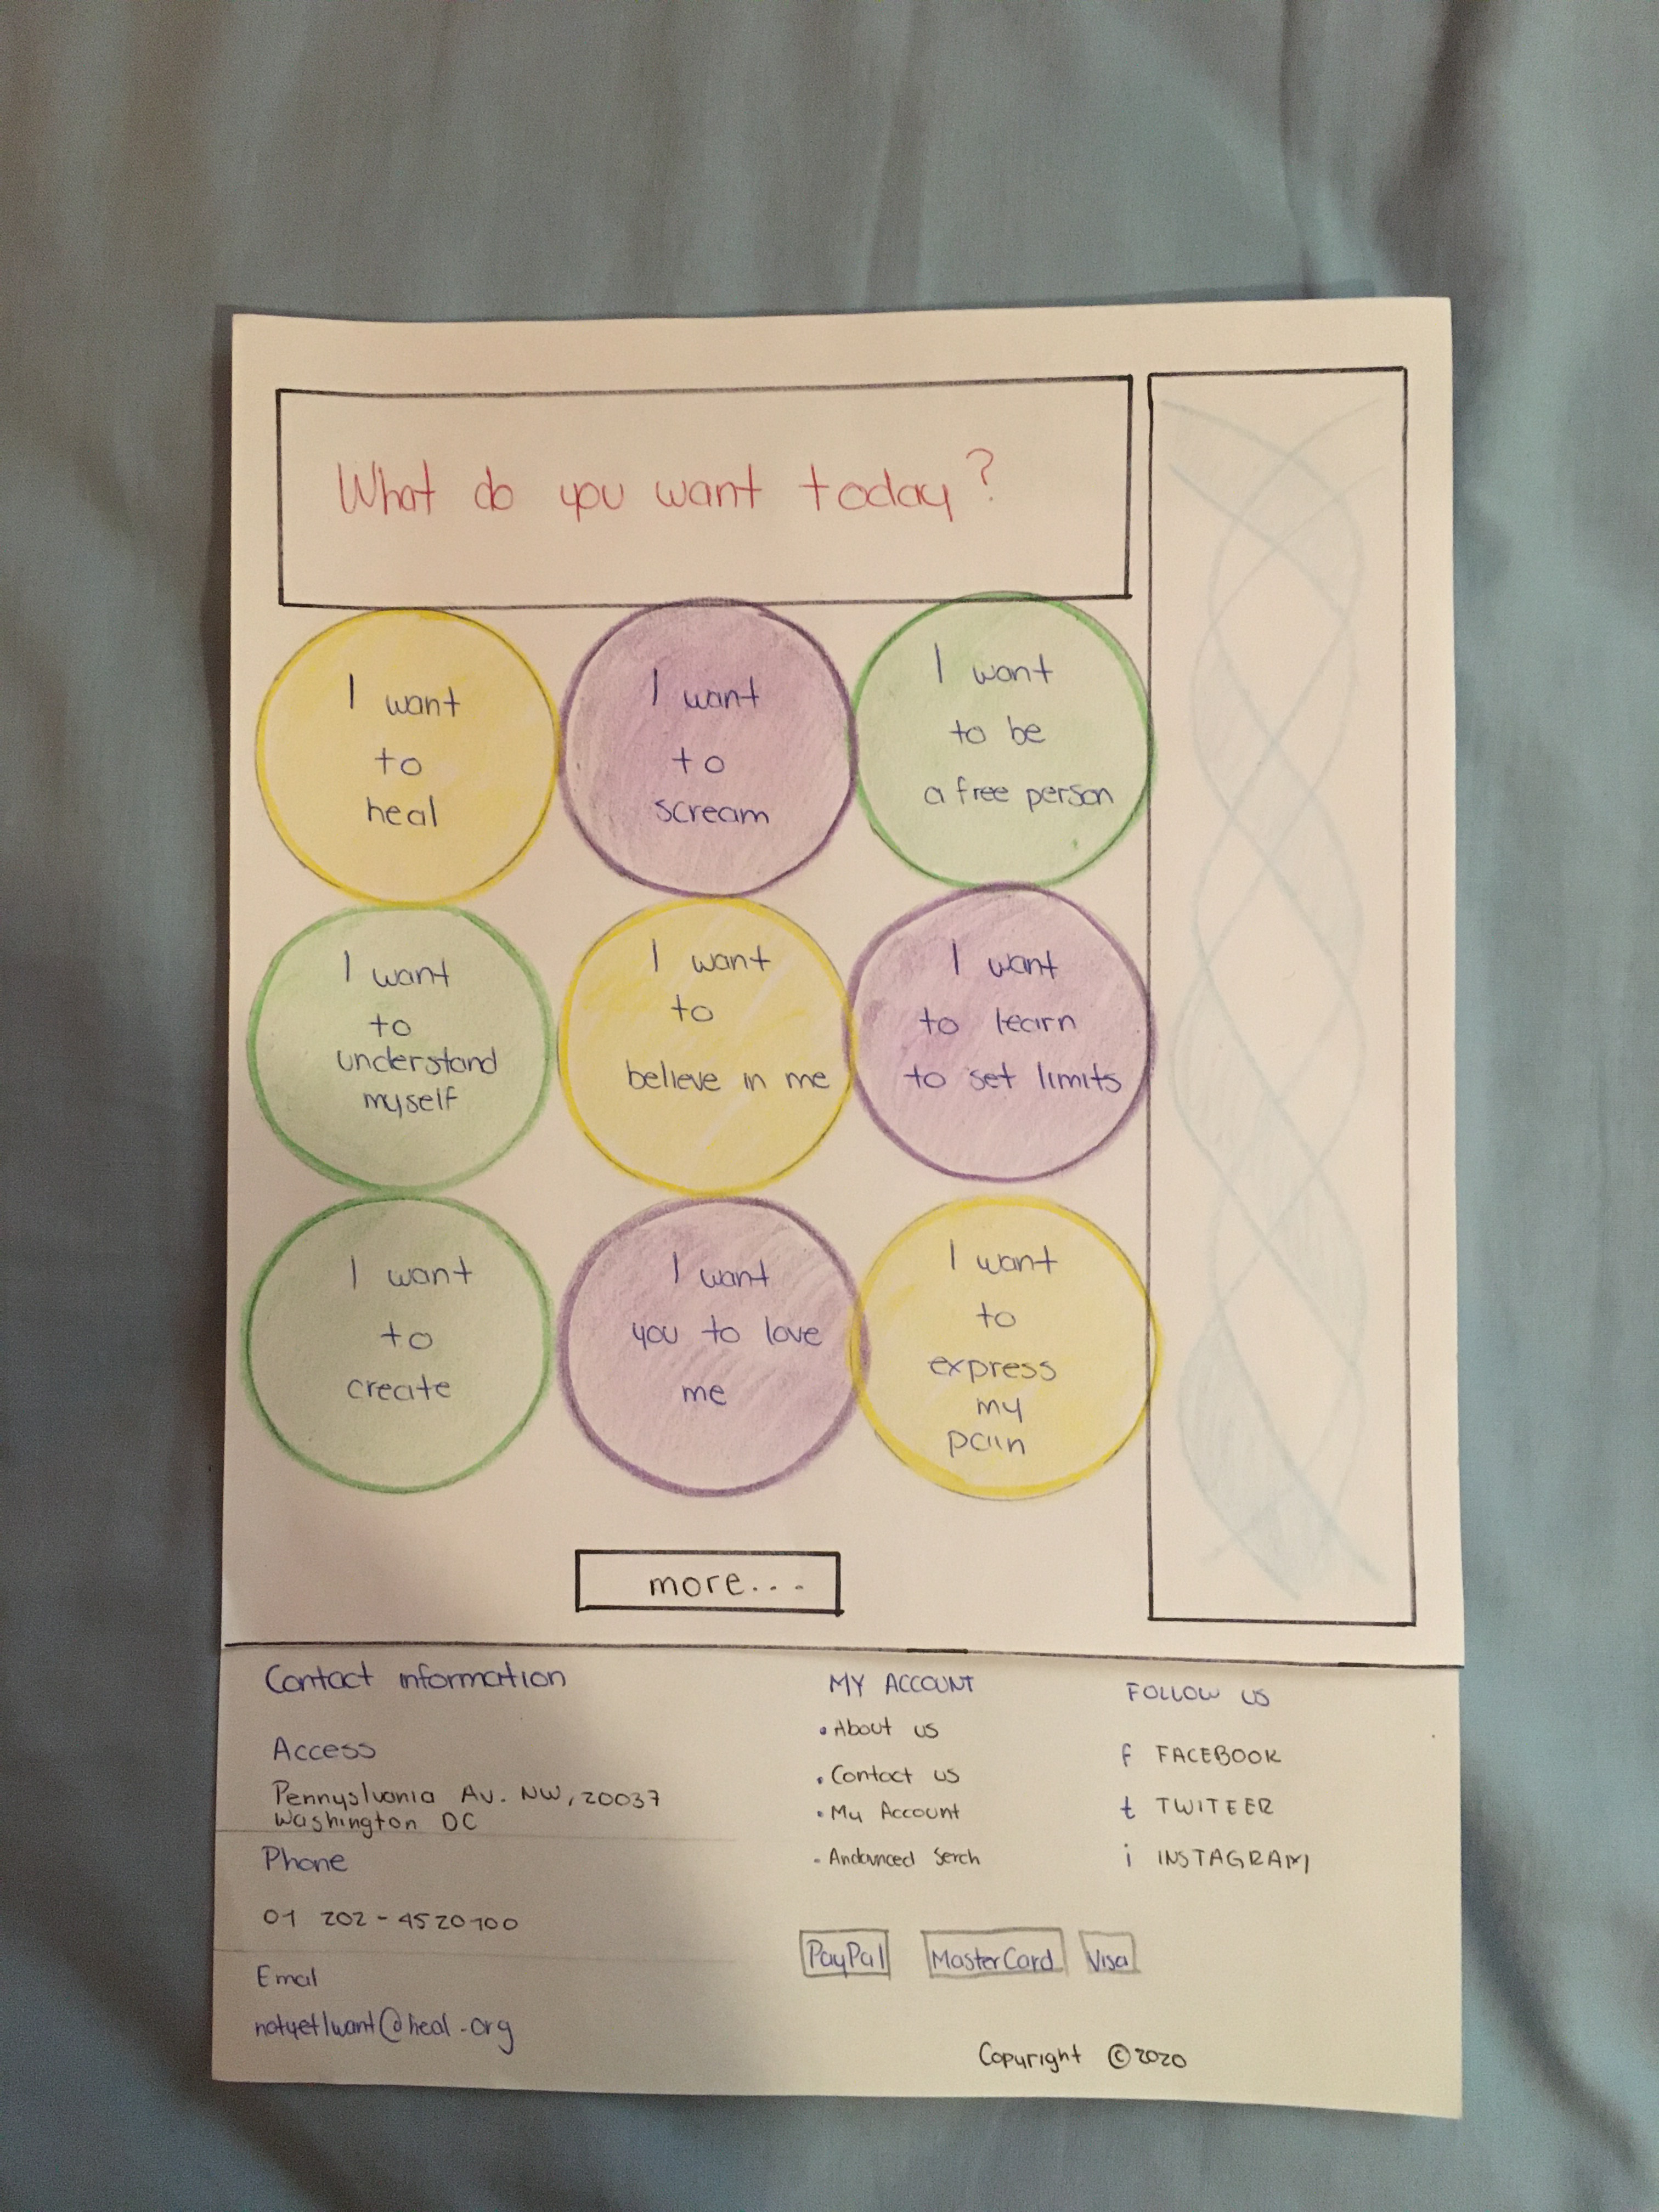 What do you want today?
I want
to
heal
I want
to
scream
I want
to be
a free person
I want
to
understand
myself
I want
to
believe in me
I want
to learn
to set limits
I want
to
create
I want
you to love
me
I want
to
express
my
pain
more...
Contact information
Access
Pennyslvania Av. NW, 20037
Washington DC
Phone
01 202-4520100
Email
notyetIwant@heal.org
MY ACCOUNT
• About us
• Contact us
• My Account
- Andvanced Serch
FOLLOW US
f FACEBOOK
t TWITEER
i INSTAGRAM
PayPal MasterCard Visa
Copyright ©2020